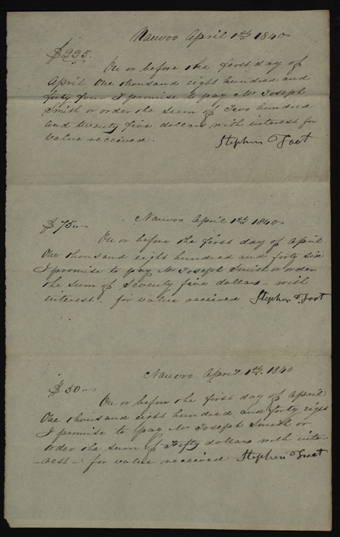 Nauvoo April 1st 1840
$225.
On or before the first day of
April One thousand eight hundred and
forty four I promise to pay Mr Joseph
Smith or order the sum of Two hundred
and twenty five dollars with interest for
value received. Stephen Foot
Nauvoo April 1st 1840
$75
On or before the first day of April
One thousand eight hundred and forty six
I promise to pay Mr Joseph Smith or order
the sum of Seventy five dollars with
interest for value received Stephen Foot
Nauvoo April 1st 1840
$50
On or before the first day of April
One thousand eight hundred and forty eight
I promise to pay Mr Joseph Smith or
order the sum of Fifty dollars with inte-
rest for value received Stephen Foot